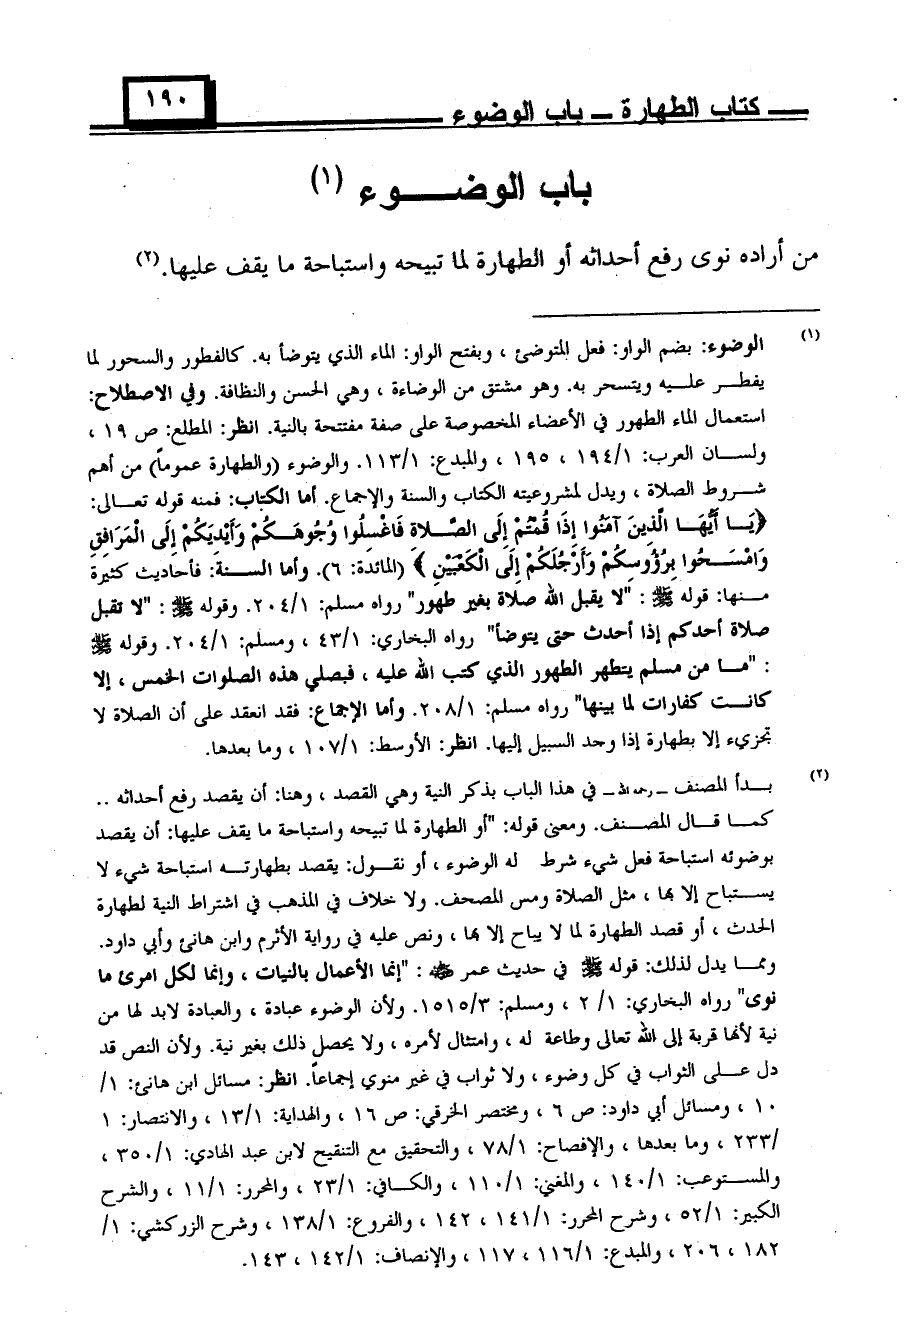 كتاب الطهارة ــ باب الوضوء
١٩٠
باب الوضـــــوء (١)
من أراده نوى رفع أحداثه أو الطهارة لما تبيحه واستباحة ما يقف عليها.(٢)
(١) الوضوء: بضم الواو: فعل المتوضئ ، وبفتح الواو: الماء الذي يتوضأ به. كالفطور والسحور لما
يفطـر علـيه ويتسحر به. وهو مشتق من الوضاءة ، وهي الحسن والنظافة. وفي الاصطلاح:
استعمال الماء الطهور في الأعضاء المخصوصة على صفة مفتتحة بالنية. انظر: المطلع: ص ١٩ ،
ولسـان العرب: ١٩٤/١ ، ١٩٥ ، والمبدع: ١١٣/١. والوضوء (والطهارة عموماً) من أهم
شـروط الصلاة ، ويدل لمشروعيته الكتاب والسنة والإجماع. أما الكتاب: فمنه قوله تعـالى:
﴿يَـا أَيُّهَـا الَّذِينَ آمَنُوا إِذَا قُمْتُمْ إِلَى الصَّلاةِ فَاغْسِلُوا وُجُوهَـكُمْ وَأَيْدِيَكُمْ إِلَى الْمَرَافِقِ
وَامْسَـحُوا بِرُؤُوسِكُمْ وَأَرْجُلَكُمْ إِلَى الْكَعْبَيْنِ ﴾ (المائدة: ٦). وأما السـنة: فأحاديث كثيرة
مـنها: قوله ﷺ : "لا يقبل الله صلاة بغير طهور" رواه مسلم: ٢٠٤/١. وقوله ﷺ : "لا تقبل
صلاة أحدكم إذا أحدث حتى يتوضأ" رواه البخاري: ٤٣/١ ، ومسلم: ٢٠٤/١. وقوله ﷺ
: "مـا من مسلم يتطهر الطهور الذي كتب الله عليه ، فيصلي هذه الصلوات الخمس ، إلا
كانـت كفارات لما بينها" رواه مسلم: ٢٠٨/١. وأما الإجماع: فقد انعقد على أن الصلاة لا
تجزيء إلا بطهارة إذا وجد السبيل إليها. انظر: الأوسط: ١٠٧/١ ، وما بعدها.
(٢) بـدأ المصنف ــ رحمه الله ــ في هذا الباب بذكر النية وهي القصد ، وهنا: أن يقصد رفع أحداثه ..
كمـا قـال المصـنف. ومعنى قوله: "أو الطهارة لما تبيحه واستباحة ما يقف عليها: أن يقصد
بوضوئه استباحة فعل شيء شرط له الوضوء ، أو نقـول: يقصد بطهارتـه استباحة شيء لا
يسـتباح إلا بها ، مثل الصلاة ومس المصحف. ولا خلاف في المذهب في اشتراط النية لطهارة
الحدث ، أو قصد الطهارة لما لا يباح إلا بها ، ونص عليه في رواية الأثرم وابن هانئ وأبي داود.
وممـا يدل لذلك: قوله ﷺ في حديث عمر ﷺ : "إنما الأعمال بالنيات ، وإنما لكل امرئ ما
نوى" رواه البخاري: ١/ ٢ ، ومسلم: ١٥١٥/٣. ولأن الوضوء عبادة ، والعبادة لابد لها من
نية لأنها قربة إلى الله تعالى وطاعة له ، وامتثال لأمره ، ولا يحصل ذلك بغير نية. ولأن النص قد
دل علـى الثواب في كل وضوء ، ولا ثواب في غير منوي إجماعاً. انظر: مسائل ابن هانئ: ١/
١٠ ، ومسائل أبي داود: ص ٦ ، ومختصر الخرقي: ص ١٦ ، والهداية: ١٣/١ ، والانتصار: ١
/٢٣٣ ، وما بعدها ، والإفصاح: ٧٨/١ ، والتحقيق مع التنقيح لابن عبد الهادي: ٣٥٠/١ ،
والمسـتوعب: ١٤٠/١ ، والمغني: ١١٠/١ ، والكـافي: ٢٣/١ ، والمحرر: ١١/١ ، والشرح
الكبير: ٥٢/١ ، وشرح المحرر: ١٤١/١ ، ١٤٢ ، والفروع: ١٣٨/١ ، وشرح الزركشي: ١/
١٨٢ ، ٢٠٦ ، والمبدع: ١١٦/١ ، ١١٧ ، والإنصاف: ١٤٢/١ ، ١٤٣.